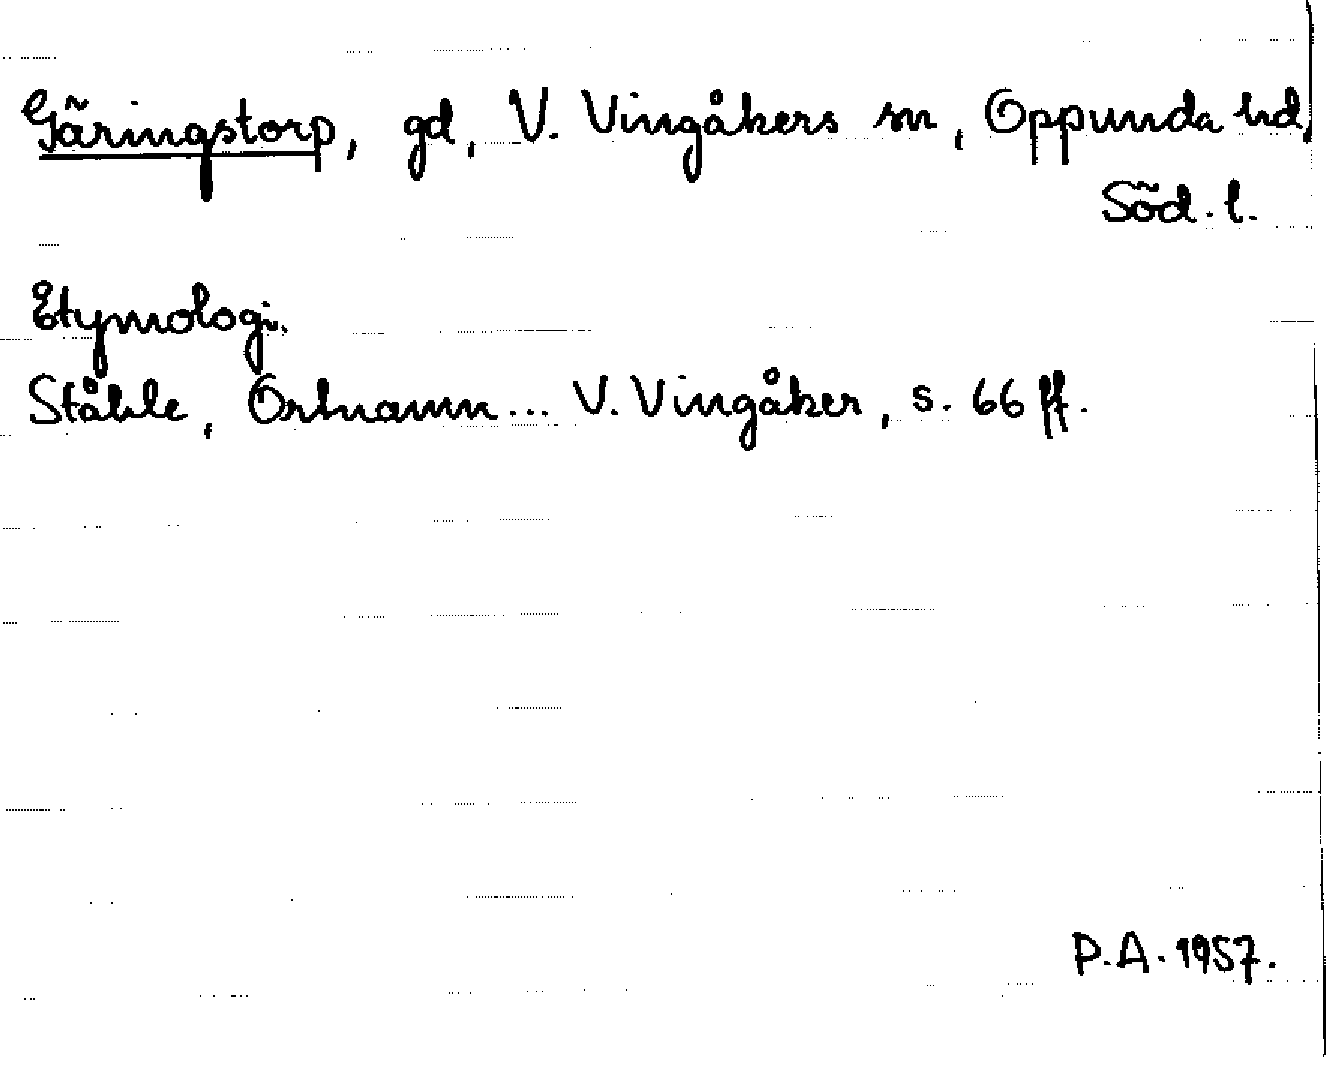 Gäringstorp, gd, V. Vingåkers sn, Oppunda hd,
Söd. l.
Etymologi.
Ståhle, Ortnamn... V. Vingåker, s. 66 ff.
P.A. 1957.